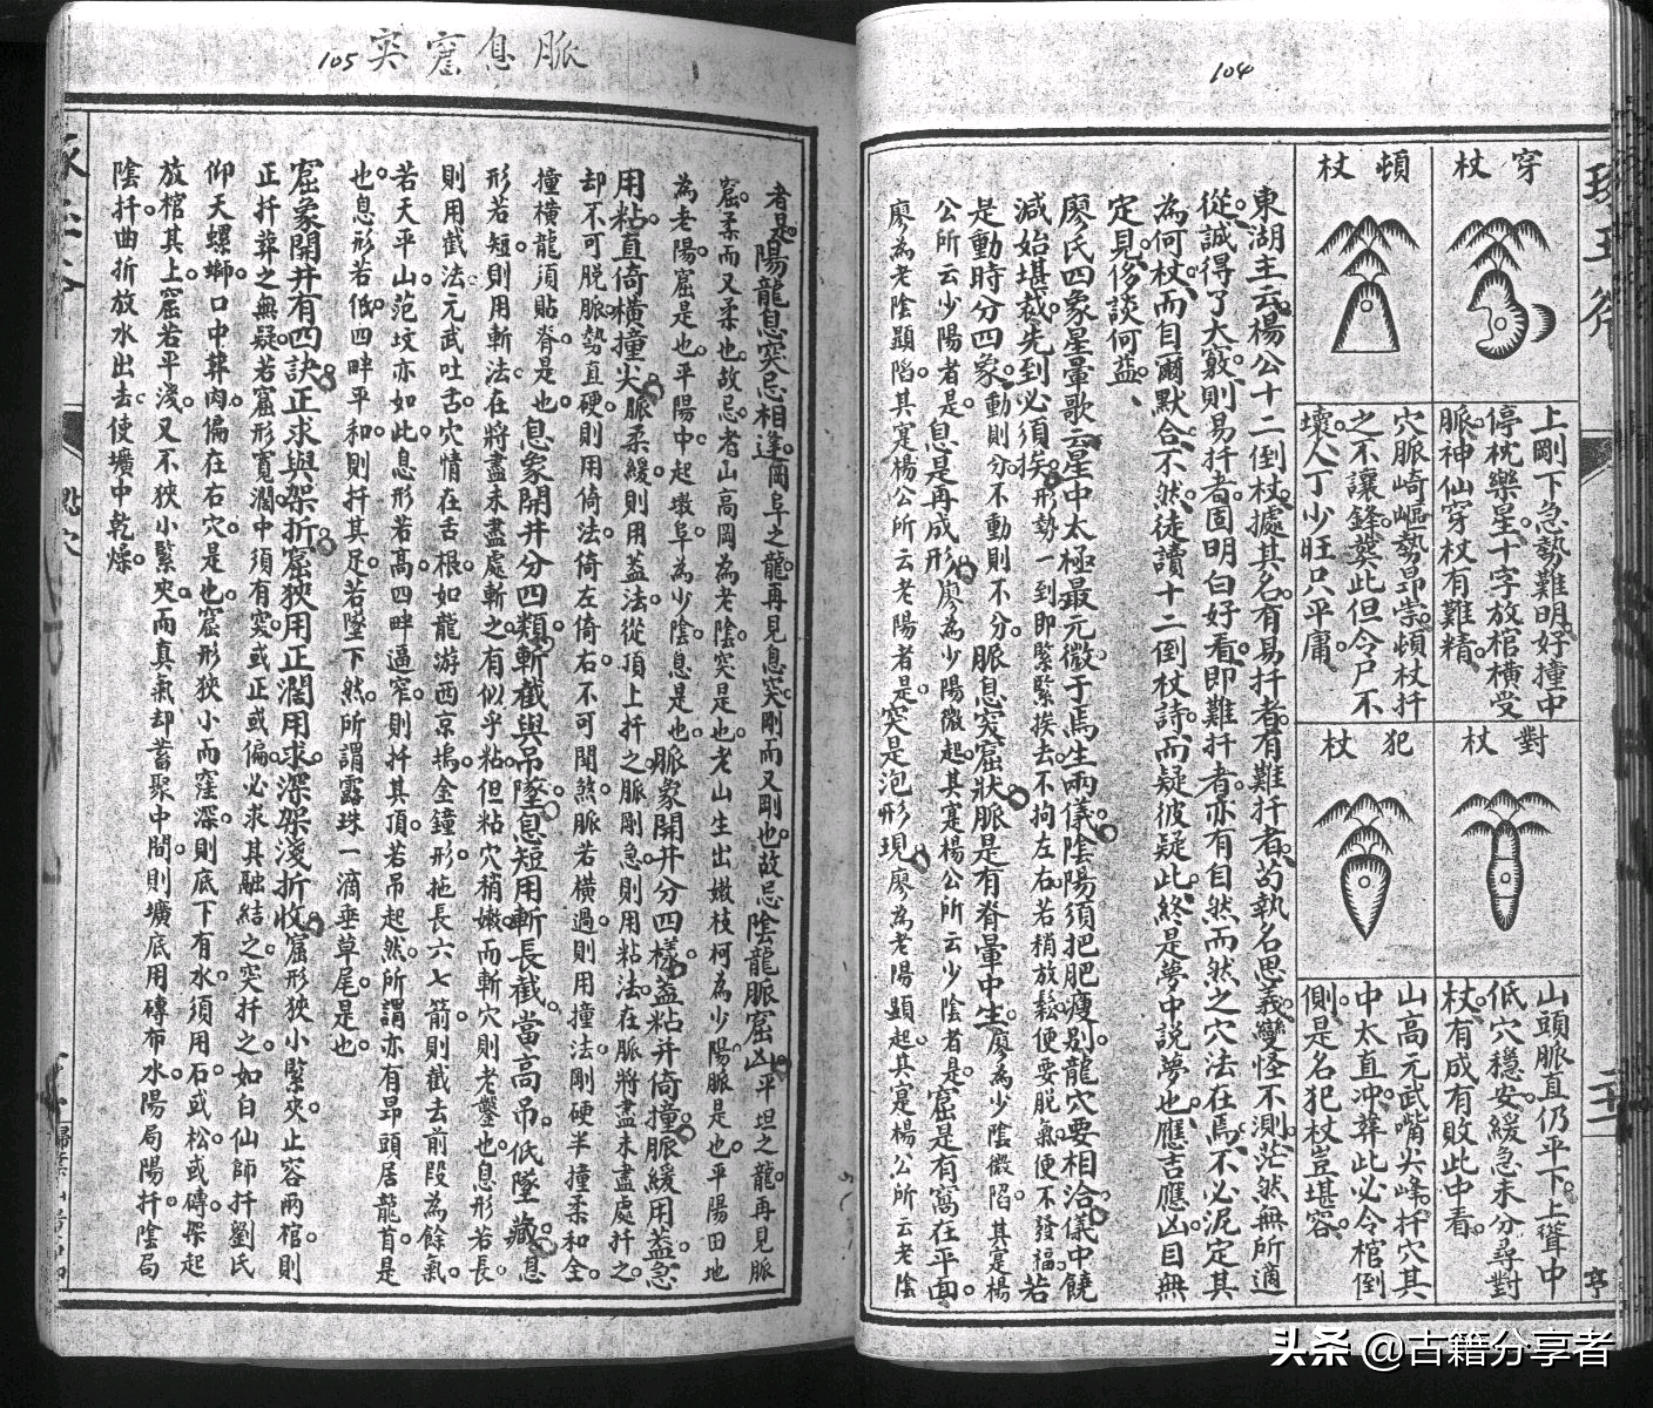 104
穿杖
上剛下急勢難明好撞中
停枕樂星十字放棺橫受
脈神仙穿杖有難精
頓杖
穴脈崎嶇勢昂崇頓杖扦
之不讓鋒葬此但令尸不
壞人丁少旺只平庸
對杖
山頭脈直仍平下上聳中
低穴穩安緩急未分尋對
杖有成有敗此中看
犯杖
山高元武嘴尖峰扦穴其
中太直冲葬此必令棺倒
側是名犯杖豈堪容
東湖主云楊公十二倒杖據其名有易扦者有難扦者苟執名思義變怪不測茫然無所適
從誠得了大竅則易扦者固明白好看即難扦者亦有自然而然之穴法在焉不必泥定其
為何杖而自爾默合不然徒讀十二倒杖詩而疑彼疑此終是夢中説夢也應吉應凶目無
定見侈談何益
廖氏四象星暈歌云星中太極最元微于焉生兩儀陰陽須把肥瘦别龍穴要相洽儀中饒
減始堪裁先到必須挨形勢一到即緊緊挨去不拘左右若稍放鬆便要脱氣便不發福若
是動時分四象動則分不動則不分脈息突窟狀脈是有脊暈中生廖為少陰微陷其寔楊
公所云少陽者是息是再成形廖為少陽微起其寔楊公所云少陰者是窟是有窩在平面
廖為老陰顯陷其寔楊公所云老陽者是突是泡形現廖為老陽顯起其寔楊公所云老陰
脈息窟突 105
者是陽龍息突忌相逢岡阜之龍再見息突剛而又剛也故忌陰龍脈窟凶平坦之龍再見脈
窟柔而又柔也故忌老山高岡為老陰突是也老山生出嫩枝柯為少陽脈是也平陽田地
為老陽窟是也平陽中起墩阜為少陰息是也脈象開井分四樣蓋粘并倚撞脈緩用蓋急
用粘直倚橫撞尖脈柔緩則用蓋法從頂上扦之脈剛急則用粘法在脈將盡未盡處扦之
却不可脱脈勢直硬則用倚法倚左倚右不可聞煞脈若橫過則用撞法剛硬半撞柔和全
撞橫龍須貼脊是也息象開井分四類斬截與吊墜息短用斬長截當高吊低墜藏息
形若短則用斬法在將盡未盡處斬之有似乎粘但粘穴稍嫩而斬穴則老鑿也息形若長
則用截法元武吐舌穴情在舌根如龍游西京塢金鐘形拖長六七箭則截去前段為餘氣
若天平山范坟亦如此息形若高四畔逼窄則扦其頂若吊起然所謂亦有昂頭居龍首是
也息形若低四畔平和則扦其足若墜下然所謂露珠一滴垂草尾是也
窟象開井有四訣正求與架折窟狹用正濶用求深架淺折收窟形狹小緊夾止容兩棺則
正扦葬之無疑若窟形寬濶中須有突或正或偏必求其融結之突扦之如白仙師扦劉氏
仰天螺螄口中葬肉偏在右穴是也窟形狹小而窪深則底下有水須用石或松或磚架起
放棺其上窟若平淺又不狹小緊夾而真氣却蓄聚中間則壙底用磚布水陽局陽扦陰局
陰扦曲折放水出去使壙中乾燥
头条 @古籍分享者